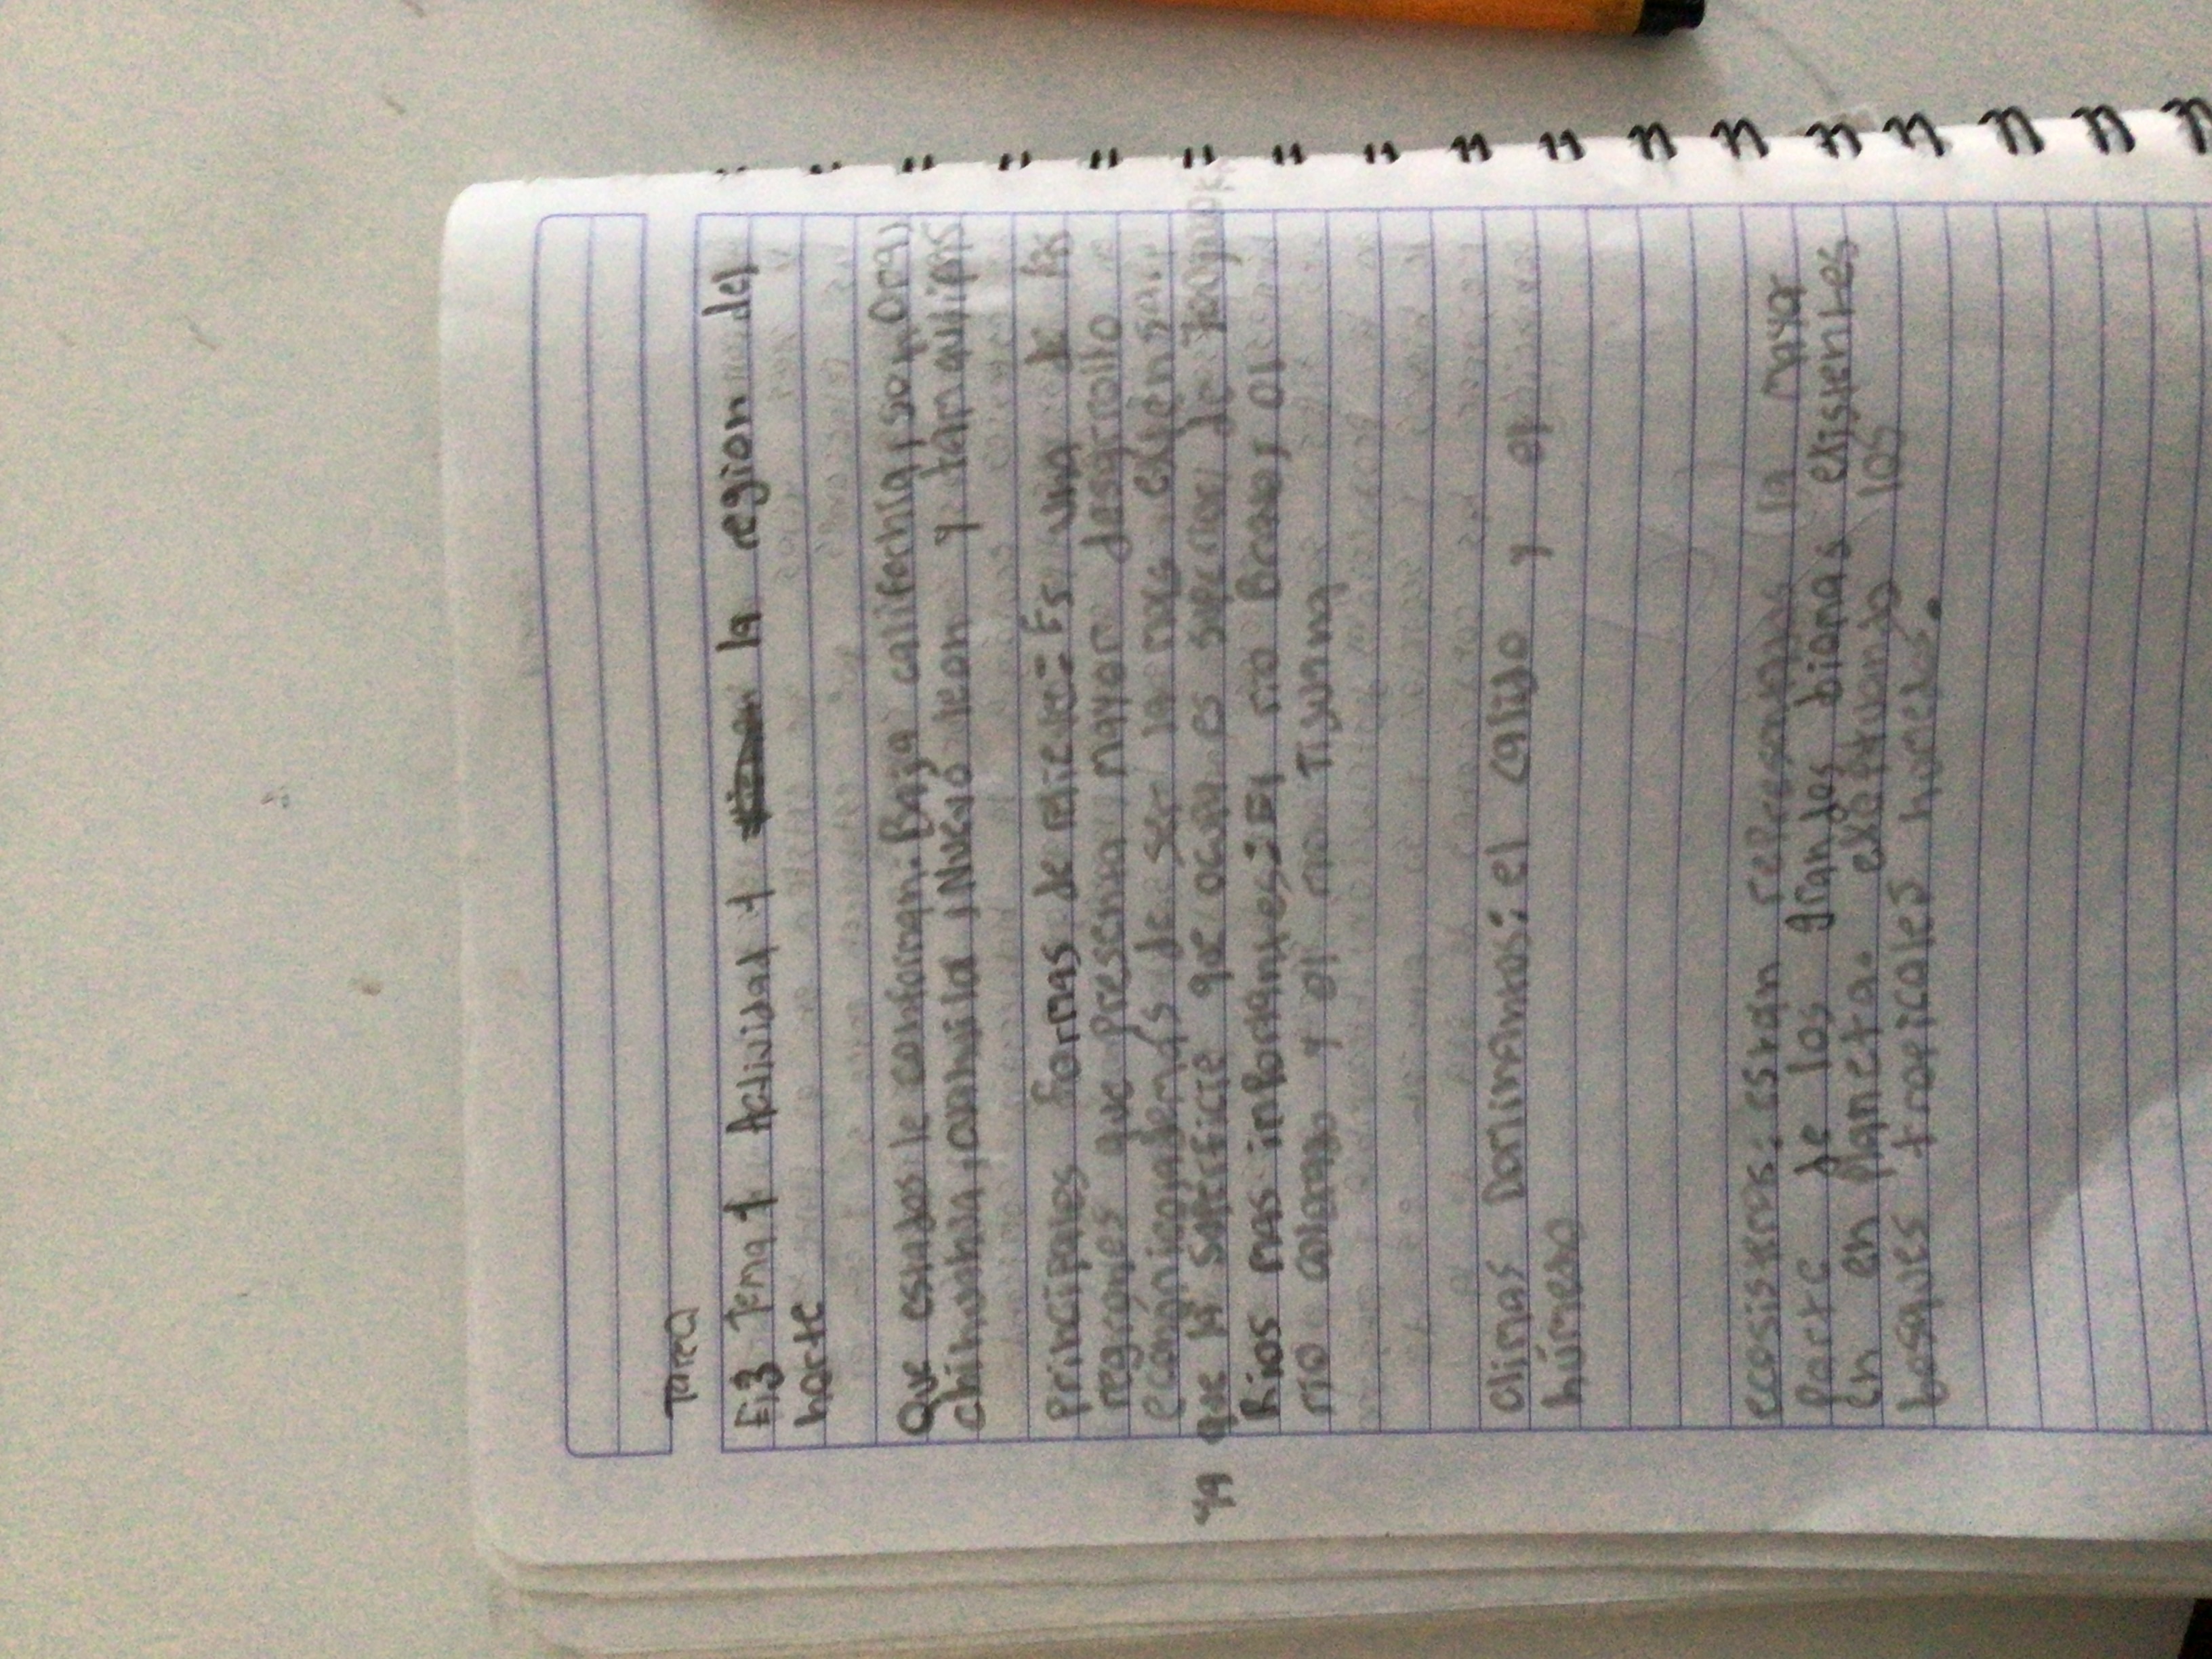 Tarea
F:3 Tema 1 Actividad 1 la region del
norte
Que estados le conforman: Baja california, sonora,
chihuahua, coahuila, Nuevo leon y tamaulipas
Principales formas de relieve: Es una de las
regiones que presenta mayor desarrollo
economico, además de ser la mas extensa,
ya que la superficie que ocupa es superior de
Rios mas importantes: El rio Bravo, el
rio colorado y el rio Tijuana
climas Dominantes: el calido y el
húmedo
ecosistemas: estan representada la mayor
parte de los grandes biomas existentes
en en planeta. exeptuando los
bosques tropicales humedos.